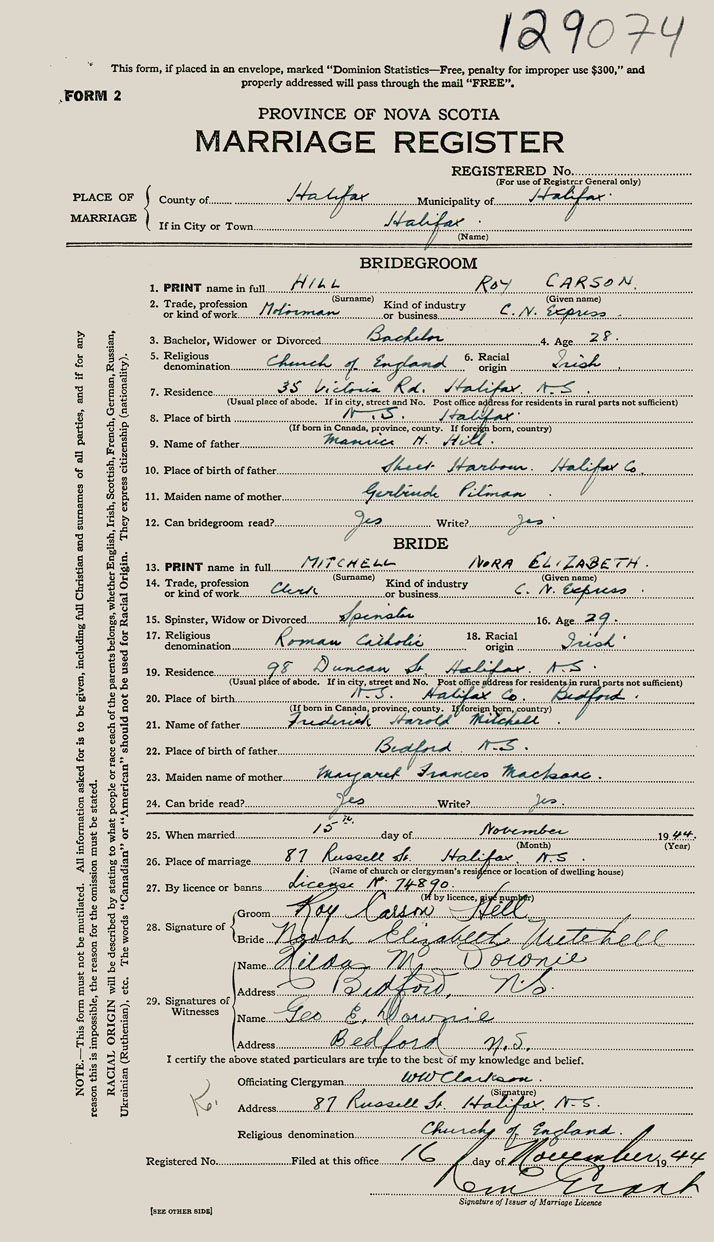 129074
This form, if placed in an envelope, marked “Dominion Statistics—Free, penalty for improper use $300,” and
properly addressed will pass through the mail “FREE”.
FORM 2
PROVINCE OF NOVA SCOTIA
MARRIAGE REGISTER
REGISTERED No.
(For use of Registrar General only)
PLACE OF MARRIAGE
County of Halifax Municipality of Halifax
If in City or Town Halifax
(Name)
BRIDEGROOM
1. PRINT name in full HILL ROY CARSON.
(Surname) (Given name)
2. Trade, profession or kind of work Motorman Kind of industry or business C. N. Express
3. Bachelor, Widower or Divorced Bachelor 4. Age 28.
5. Religious denomination Church of England 6. Racial origin Irish
7. Residence 35 Victoria Rd. Halifax. N.S.
(Usual place of abode. If in city, street and No. Post office address for residents in rural parts not sufficient)
8. Place of birth N.S. Halifax
(If born in Canada, province, county. If foreign born, country)
9. Name of father Maurice H. Hill.
10. Place of birth of father Sheet Harbour. Halifax Co.
11. Maiden name of mother Gertrude Pitman
12. Can bridegroom read? Yes Write? Yes
BRIDE
13. PRINT name in full MITCHELL NORA ELIZABETH.
(Surname) (Given name)
14. Trade, profession or kind of work Clerk Kind of industry or business C. N. Express
15. Spinster, Widow or Divorced Spinster 16. Age 29.
17. Religious denomination Roman Catholic 18. Racial origin Irish
19. Residence 98 Duncan St. Halifax. N.S.
(Usual place of abode. If in city, street and No. Post office address for residents in rural parts not sufficient)
20. Place of birth N.S. Halifax Co. Bedford.
(If born in Canada, province, county. If foreign born, country)
21. Name of father Frederick Harold Mitchell
22. Place of birth of father Bedford N.S.
23. Maiden name of mother Margaret Frances MacIsaac.
24. Can bride read? Yes Write? Yes.
25. When married 15th day of November 1944.
(Month) (Year)
26. Place of marriage 87 Russell St. Halifax. N.S
(Name of church or clergyman's residence or location of dwelling house)
27. By licence or banns License No. 74890.
(If by licence, give number)
28. Signature of
Groom Roy Carson Hill
Bride Norah Elizabeth Mitchell
29. Signatures of Witnesses
Name Hilda M. Downie
Address Bedford, N.S.
Name Geo E. Downie
Address Bedford N.S.
I certify the above stated particulars are true to the best of my knowledge and belief.
Officiating Clergyman WW Clarkson.
(Signature)
Address 87 Russell St. Halifax. N.S.
Religious denomination Church of England.
Registered No. Filed at this office 16 day of November 1944
Signature of Issuer of Marriage Licence
[SEE OTHER SIDE]
NOTE.—This form must not be mutilated. All information asked for is to be given, including full Christian and surnames of all parties, and if for any
reason this is impossible, the reason for the omission must be stated.
RACIAL ORIGIN will be described by stating to what people or race each of the parents belongs, whether English, Irish, Scottish, French, German, Russian,
Ukrainian (Ruthenian), etc. The words “Canadian” or “American” should not be used for Racial Origin. They express citizenship (nationality).